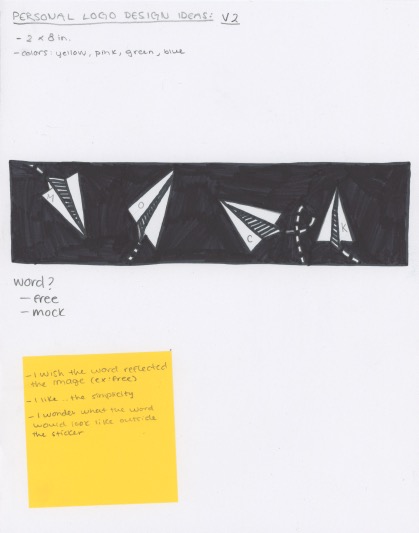 PERSONAL LOGO DESIGN IDEAS: V2
- 2 x 8 in.
- colors: yellow, pink, green, blue
M O C K
word?
- free
- mock
- I wish the word reflected
the image (ex: free)
- I like.. the simplicity
- I wonder what the word
would look like outside
the sticker